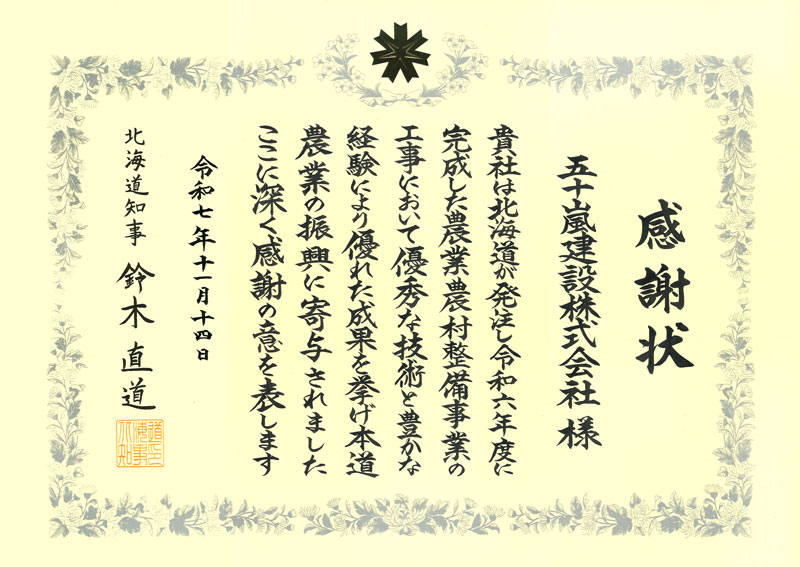 感謝状
五十嵐建設株式会社 様
貴社は北海道が発注し令和六年度に
完成した農業農村整備事業の
工事において優秀な技術と豊かな
経験により優れた成果を挙げ本道
農業の振興に寄与されました
ここに深く感謝の意を表します
令和七年十一月十四日
北海道知事 鈴木直道